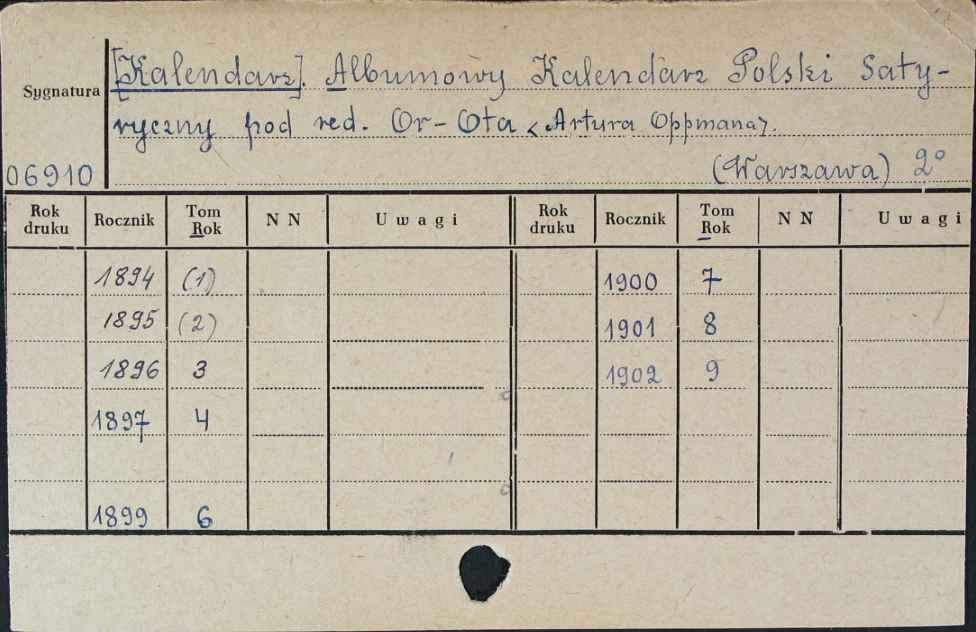 [Kalendarz]. Albumowy Kalendarz Polski Saty-
Sygnatura
ryczny pod red. Or-Ota <Artura Oppmana>.
06910 (Warszawa) 2°
Rok druku Rocznik Tom Rok N N Uwagi Rok druku Rocznik Tom Rok N N Uwagi
1894 (1) 1900 7
1895 (2) 1901 8
1896 3 1902 9
1897 4
1899 6